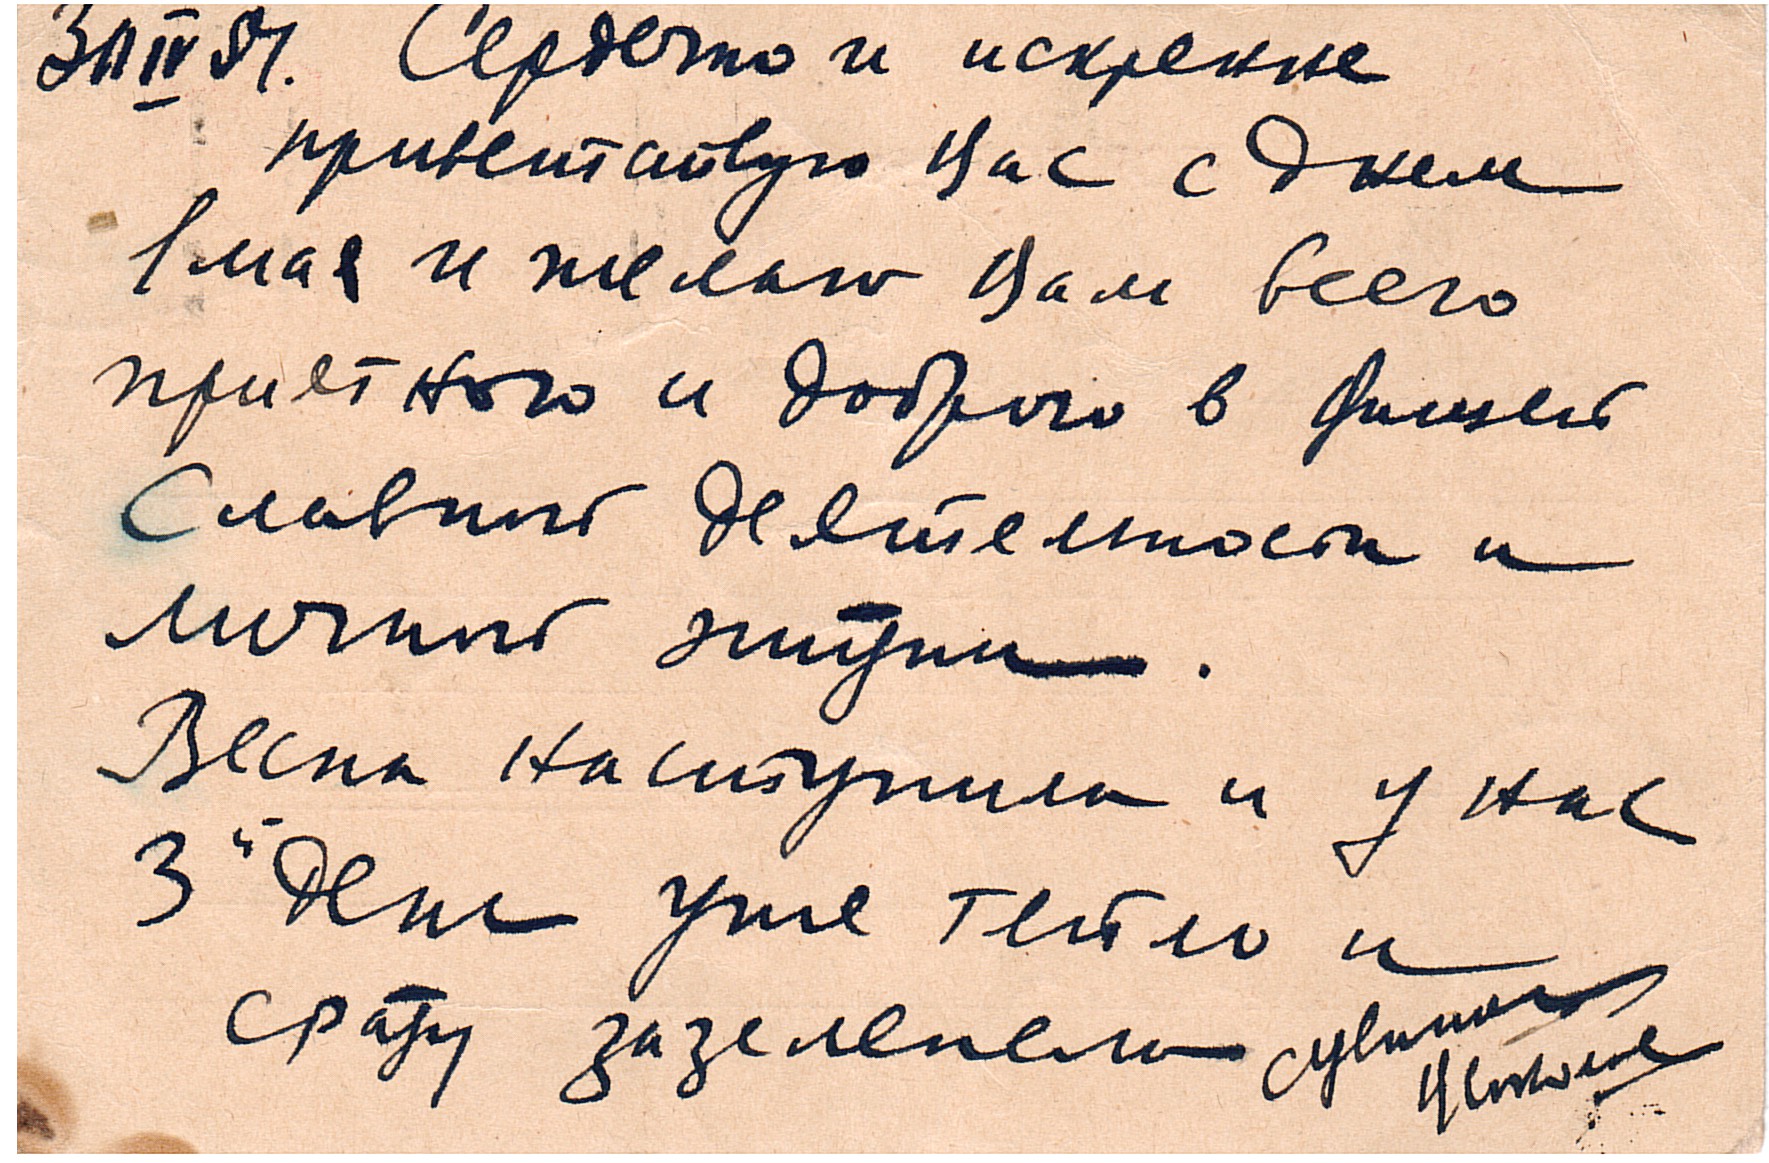 Сердечно и искренне
приветствую Вас с днем
1 мая и желаю Вам всего
приятного и доброго в Вашей
славной деятельности и
личной жизни.
Весна наступила и у нас
3й день уже тепло и
сразу зазеленело с уваж